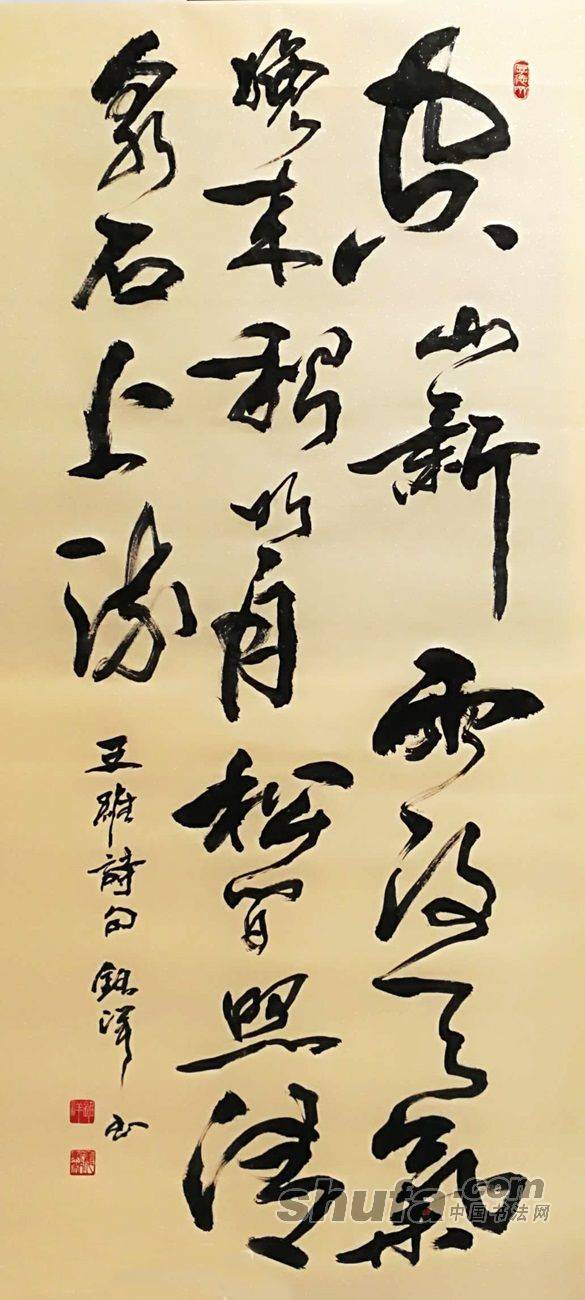 空山新雨後天氣
晚来秋明月松間照清
泉石上流
王維詩句 鈺洋书
shufa.com
中国书法网